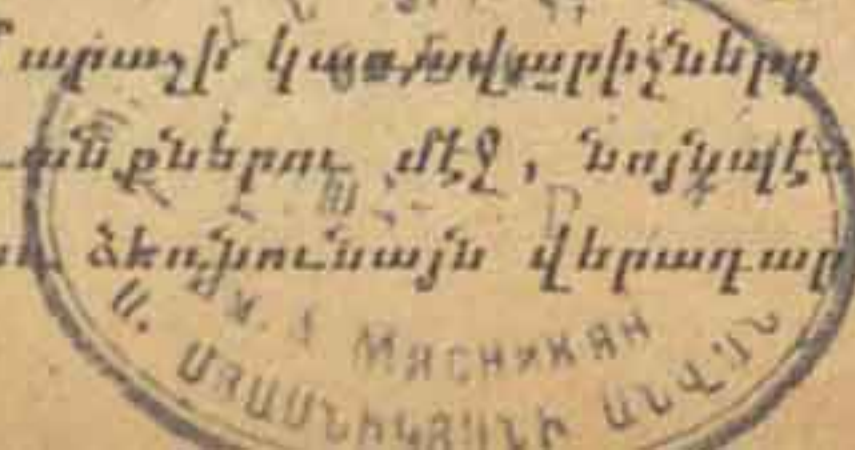 Մարաշի կառավարիչները
անքներու մէջ, նոյնպէս
ձեռնունայն վերադար
МЯСНИКЯН
Ա. ՄՅԱՍՆԻԿՅԱՆԻ ԱՆՎԱՆ